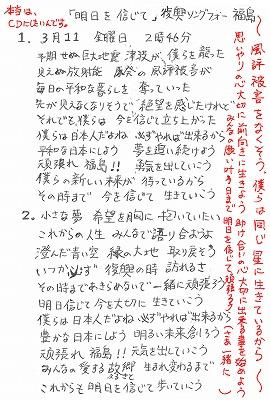 本当は、
CDにしたいんです。
「明日を信じて」復興ソングフォー福島
1. 3月11 金曜日 2時46分
予期せぬ巨大地震 津波が、僕らを襲った
見えぬ放射能 原発の風評被害が
毎日の平和な暮らしを 奪っていった
先が見えなくなりそうで 絶望を感じたけれど
それでも僕らは 今を信じて立ち上がった
僕らは日本人だよね 必ずやれば出来るから
平和な日本にしよう 夢を追い続けよう
頑張れ 福島!! 勇気を出していこう
僕らの新しい未来が 待っているから
その時まで 今を信じて 生きていこう
2. 小さな夢 希望を胸に 抱いていたい
これからの人生 みんなで語り合おうよ
澄んだ青い空 緑の大地 取り戻そう
いつか必ず 復興の時 訪れるさ
その時まであきらめないで 一緒に頑張ろう
明日信じて 今を大切に 生きていこう
僕らは日本人だよね 必ずやれば出来るから
豊かな日本にしよう 明るい未来創ろう
頑張れ 福島!! 元気を出していこう
みんなの愛する故郷 生まれ変わるまで
ふるさと
これからも明日を信じて 歩いていこう
〜風評被害をなくそう、僕らは同じ星に生きているから〜
思いやりの心大切に 前向きに生きよう 助け合いの心大切に 出来る事を始めよう
みんなの願い 叶う日まで 明日を信じて頑張ろう (さあ一緒に)